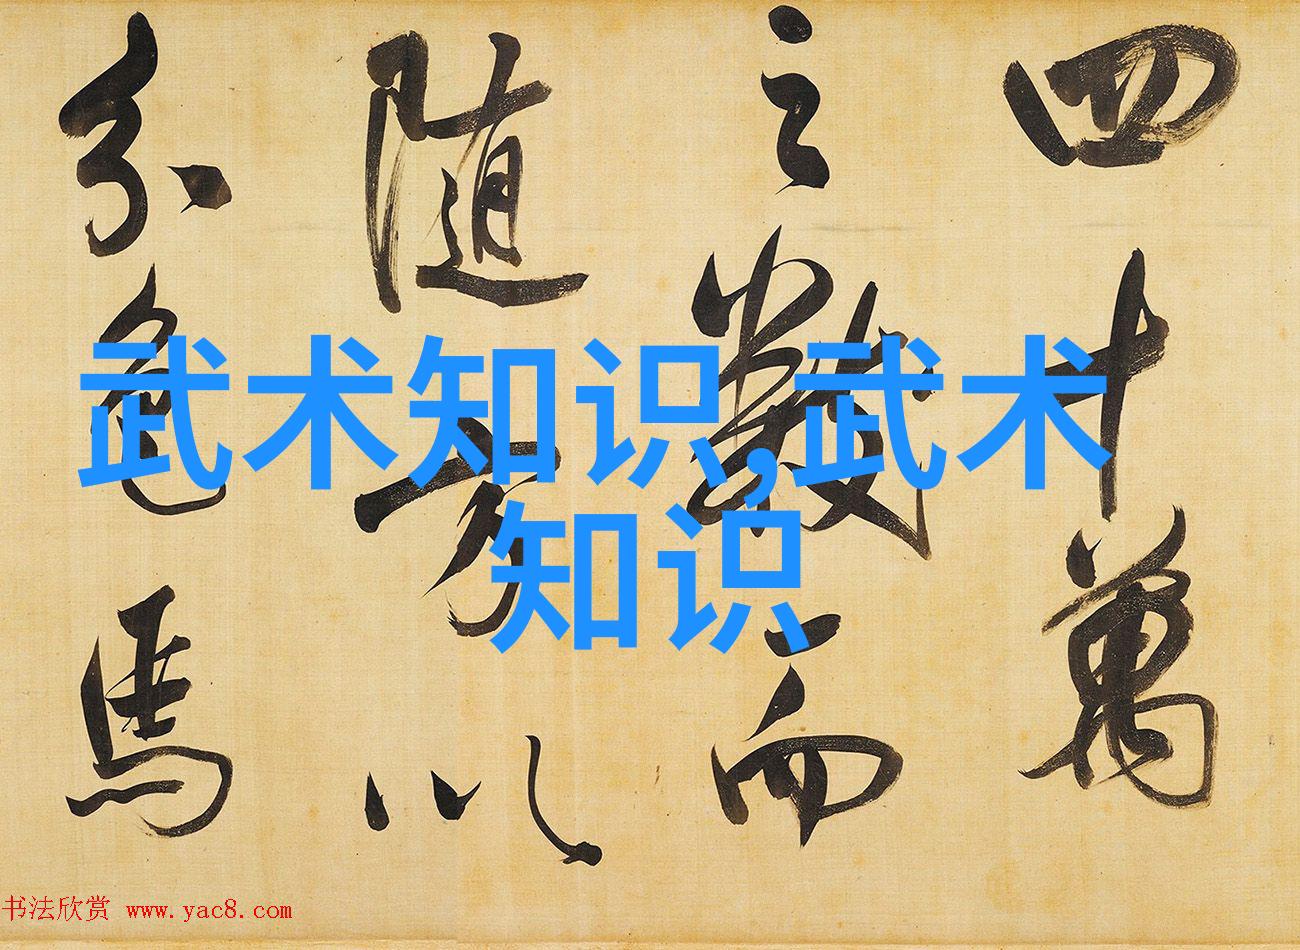 四十萬
之數而
随方以
分色馬
武术知识,武术
知识
书法欣赏 www.yac8.com